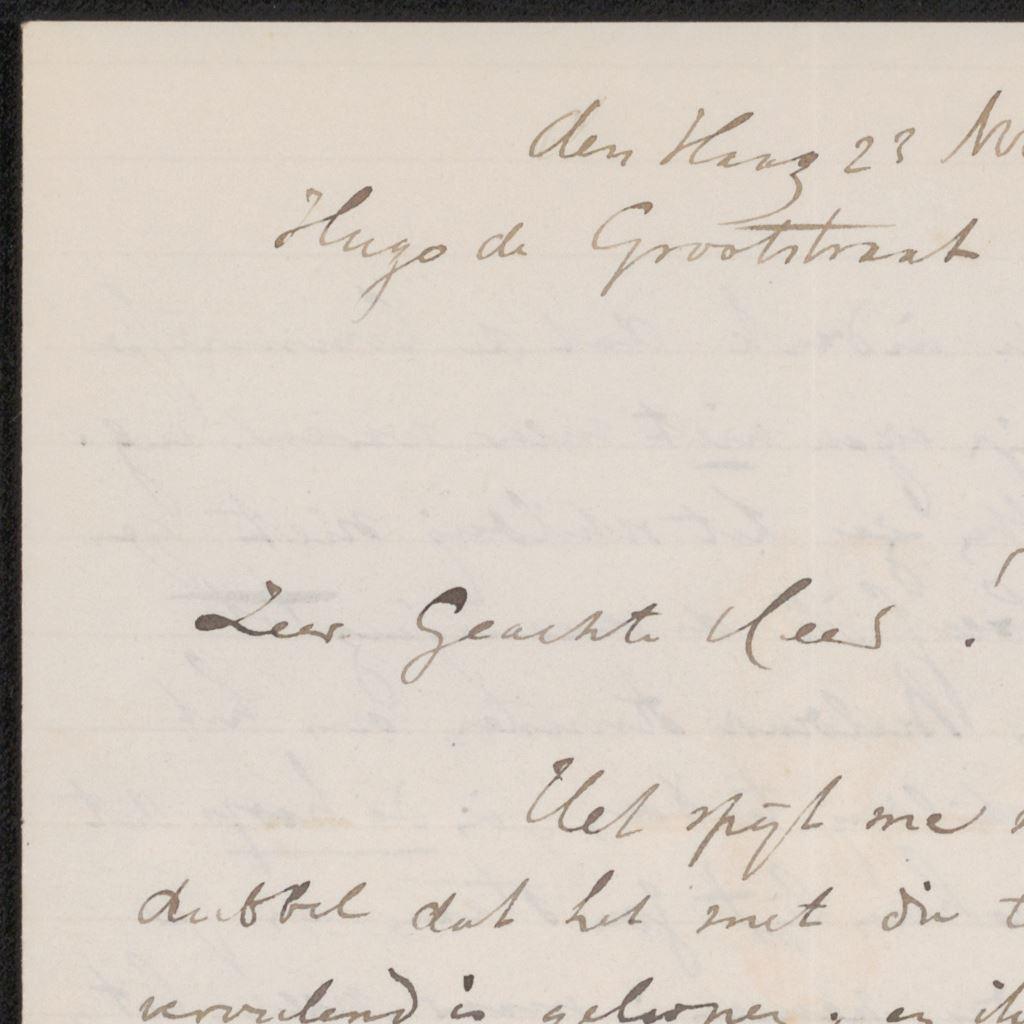 den Haag 23
Hugo de Grootstraat
Zeer Geachte Heer !
Het spijt me
dubbel dat het met die
vervelend is geloopen. en ik